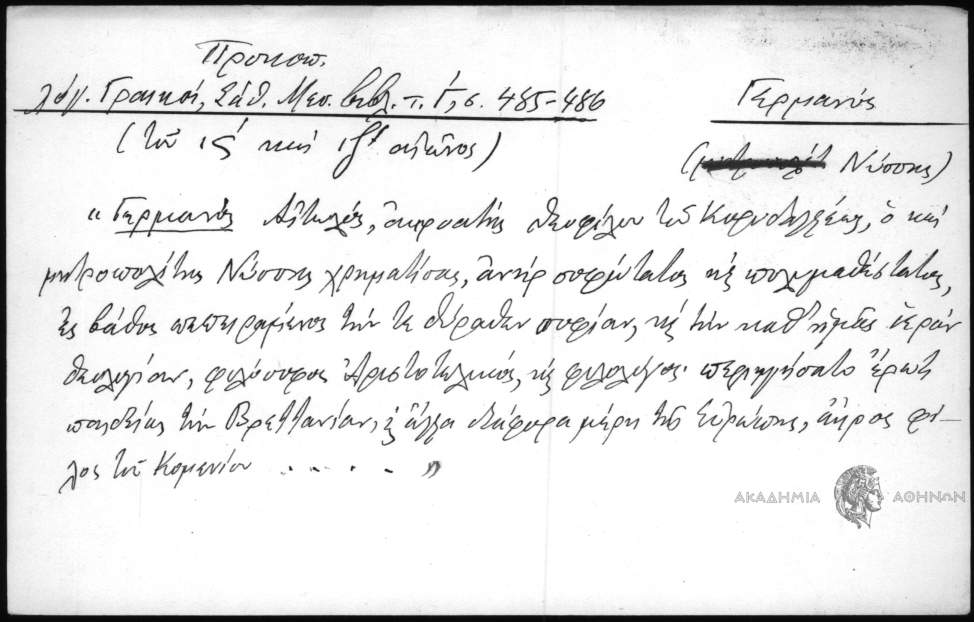 Προκοπ.
λόγ. Γραικοί, Σάθ. Μεσ. βιβλ. τ. Γ', σ. 485-486
Γερμανός
(τοῦ ις' καὶ ιζ' αἰῶνος)
(Νύσσης)
"Γερμανὸς Αἰτωλός, ἀκροατὴς Θεοφίλου τοῦ Κορυδαλλέως, ὁ καὶ
μητροπολίτης Νύσσης χρηματίσας, ἀνὴρ σοφώτατος κ̀ πολυμαθέστατος,
ἐς βάθος πεπειραμένος τήν τε θύραθεν σοφίαν, κ̀ τὴν καθ' ἡμᾶς ἱερὰν
θεολογίαν, φιλόσοφος Ἀριστοτελικός, κ̀ φιλολόγος· περιηγήσατο ἔρωτι
παιδείας τὴν Βρεττανίαν, κ̀ ἄλλα διάφορα μέρη τῆς Εὐρώπης, ἄκρος φί-
λος τοῦ Κομενίου . . . . . "
ΑΚΑΔΗΜΙΑ ΑΘΗΝΩΝ